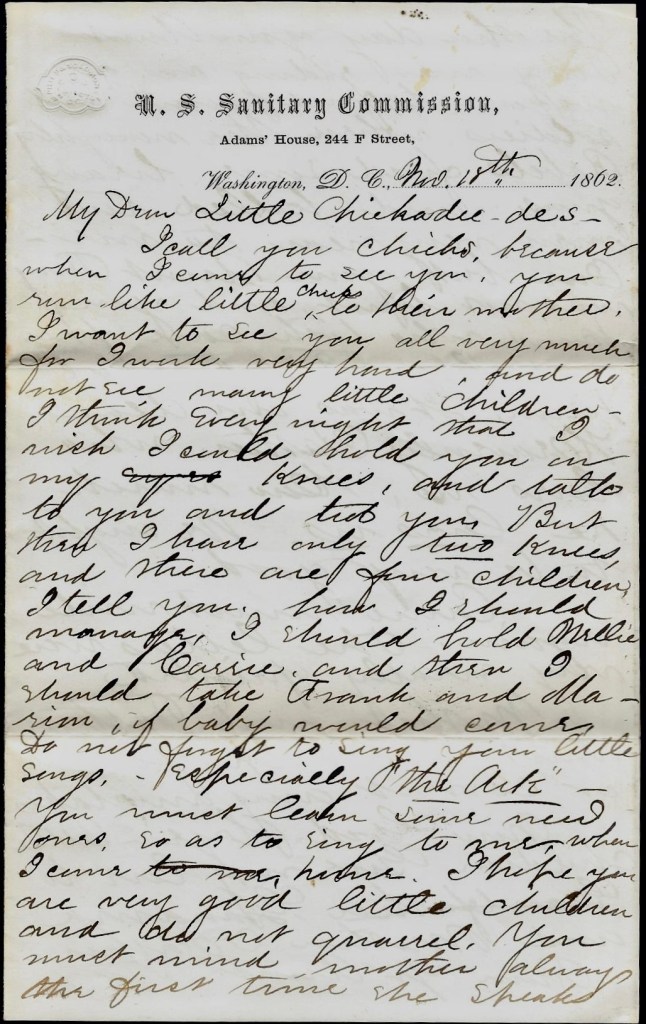 U. S. Sanitary Commission,
Adams' House, 244 F Street,
Washington, D. C., Nov. 18th 1862.
My Dear Little Chickadee-des-
I call you chicks, because
when I come to see you, you
run like little chicks to their mother.
I want to see you all very much
for I work very hard, and do
not see many little children -
I think every night that I
wish I could hold you on
my eyes knees, and talk
to you and you. But
then I have only two knees,
and there are four children,
I tell you. how I should
manage, I should hold Nellie
and Carrie. and then I
should take Frank and Ma-
rion, if baby would come,
Do not forget to sing your little
songs. - Especially "the Ark" -
You must learn some new
ones, so as to sing to me, when
I come to me, home. I hope you
are very good little children
and do not quarrel. You
must mind mother always
the first time she speaks